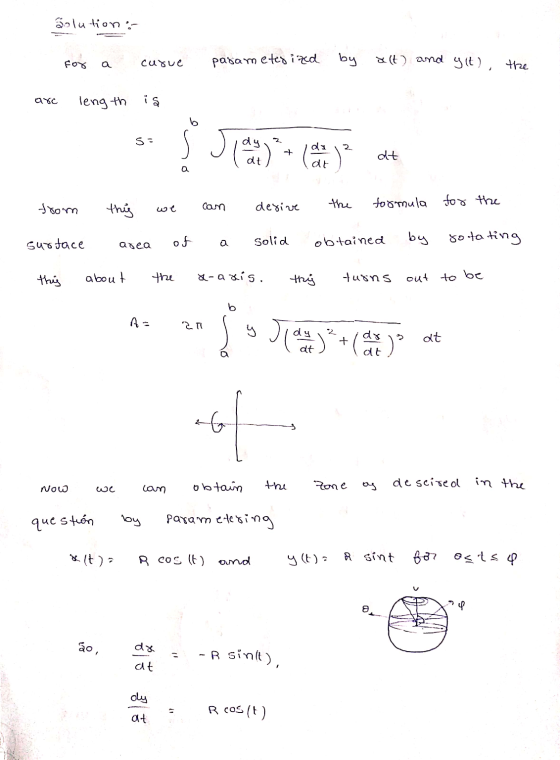 Solution :-
For a curve parameterized by x(t) and y(t), the
arc length is
S = ∫_a^b √((dy/dt)² + (dx/dt)²) dt
from this we can derive the formula for the
surface area of a solid obtained by rotating
this about the x-axis. this turns out to be
A = 2π ∫_a^b y √((dy/dt)² + (dx/dt)²) dt
Now we can obtain the zone as descired in the
question by parametering
x(t) = R cos(t) and y(t) = R sint for 0 ≤ t ≤ φ
θ φ
So, dx/dt = - R sin(t),
dy/dt = R cos(t)